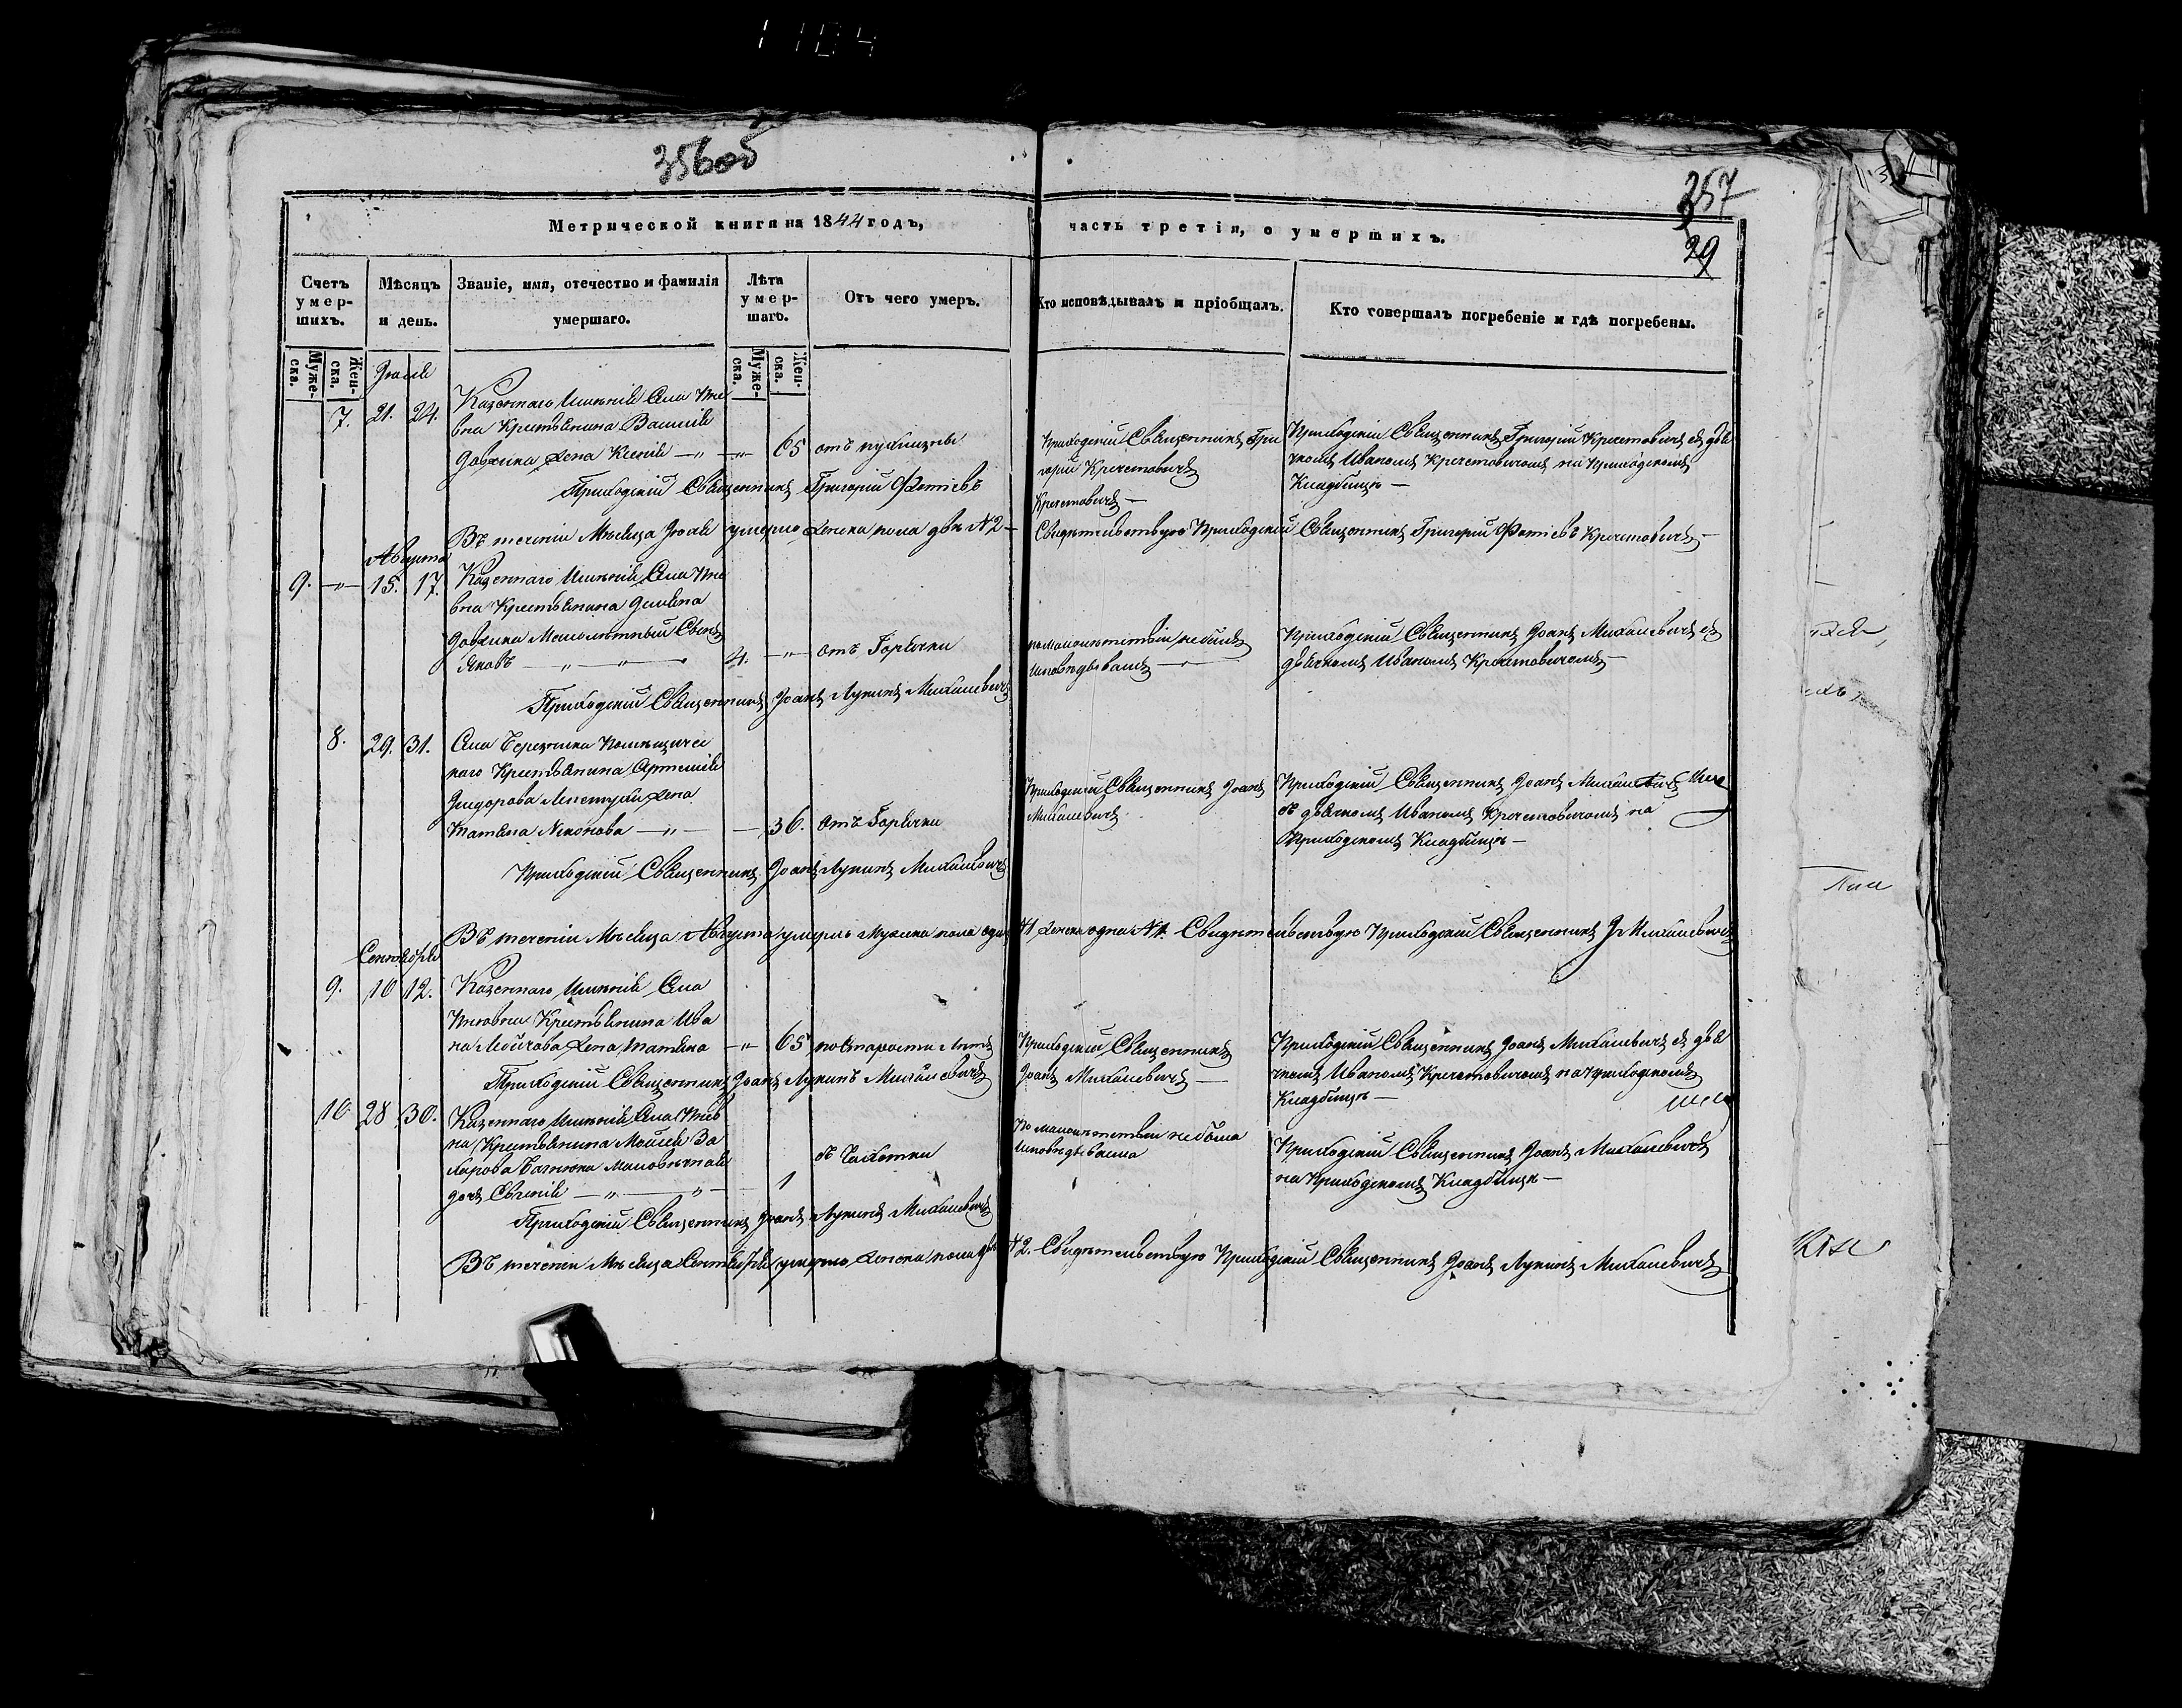 1104
356об
357
29
Метрической книги на 1844 годъ,
часть третія, о умершихъ.
Счетъ умер-шихъ.
Мѣсяцъ и день.
Званіе, имя, отечество и фамилія умершаго.
Лѣта умер-шаго.
Отъ чего умеръ.
Кто исповѣдывалъ и пріобщалъ.
Кто совершалъ погребеніе и гдѣ погребены.
Муже-ска.
Жен-ска.
Муже-ска.
Жен-ска.
Іюля
7. 21. 24.
Казеннаго Имѣнія Села
вна Крестьянина Василія
жена Ксенія — " — " — 65 отъ
Приходскій Священникъ Гри
горій Кречетовичъ
Приходскій Священникъ Григорій Кречетовичъ съ дья
комъ Иваномъ Кречетовичомъ на Приходскомъ
Кладбищѣ —
Приходскій Священникъ Григорій Фотіевъ
Кречетовичъ —
Въ теченіи Мѣсяца Іюля умерло женска пола двѣ N 2 — Свидѣтельствую Приходскій Священникъ Григорій Фотіевъ Кречетовичъ —
Августа
9. — " — 15. 17.
Казеннаго Имѣнія Села
вна Крестьянина Демьяна
Малолѣтный Сынъ
Яковъ — " — " — 4. — " — отъ Горячки
по малолѣтствію не былъ
исповѣдыванъ — " —
Приходскій Священникъ Іоанъ Михалевичъ съ
дьячкомъ Иваномъ Кречетовичомъ —
Приходскій Священникъ Іоанъ Лукинъ Михалевичъ
8. 29. 31.
Села Помѣщичес
каго Крестьянина Артемія
жена
Татьяна — " — — 36. отъ Горячки
Приходскій Священникъ Іоанъ
Михалевичъ
Приходскій Священникъ Іоанъ Михалевичъ
съ дьячкомъ Иваномъ Кречетовичомъ на
Приходскомъ Кладбищѣ —
Приходскій Священникъ Іоанъ Лукинъ Михалевичъ
Въ теченіи Мѣсяца Августа умерло Мужска пола одинъ N 1, женска одна N 1. Свидѣтельствую Приходскій Священникъ І Михалевичъ
Сентября
9. 10 12.
Казеннаго Имѣнія Села
Крестьянина Ива
на жена Татьяна — " — 65 по Старости Лѣтъ
Приходскій Священникъ
Іоанъ Михалевичъ —
Приходскій Священникъ Іоанъ Михалевичъ съ дья
чкомъ Иваномъ Кречетовичомъ на приходскомъ
Кладбищѣ —
Приходскій Священникъ Іоанъ Лукинъ Михалевичъ
10 28 30.
Казеннаго Имѣнія Села
на Крестьянина Моисея За
харова малолѣтная
дочь — " — " — 1 съ Чахотки
По малолѣтствію не была
исповѣдывана
Приходскій Священникъ Іоанъ Михалевичъ
на Приходскомъ Кладбищѣ —
Приходскій Священникъ Іоанъ Лукинъ Михалевичъ
Въ теченіи Мѣсяца Сентября умерло женска пола двѣ N 2. Свидѣтельствую Приходскій Священникъ Іоанъ Лукинъ Михалевичъ